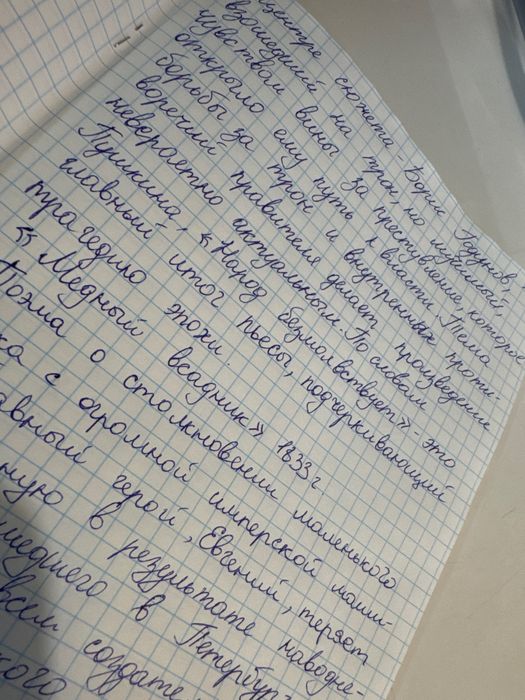 центре сюжета - Борис Годунов,
взошедший на трон, но мучимый
чувством вины за преступление, которое
открыло ему путь к власти. Тема
борьбы за трон и внутренних проти-
воречий правителя делает произведение
невероятно актуальным. По словам
Пушкина, «Народ безмолвствует» - это
главный итог пьесы, подчеркивающий
трагедию эпохи.
«Медный всадник» 1833г.
Поэма о столкновении маленького
ка с огромной имперской маши-
авный герой, Евгений, теряет
ную в результате наводне-
шедшего в Петербур-
всем создате
кого